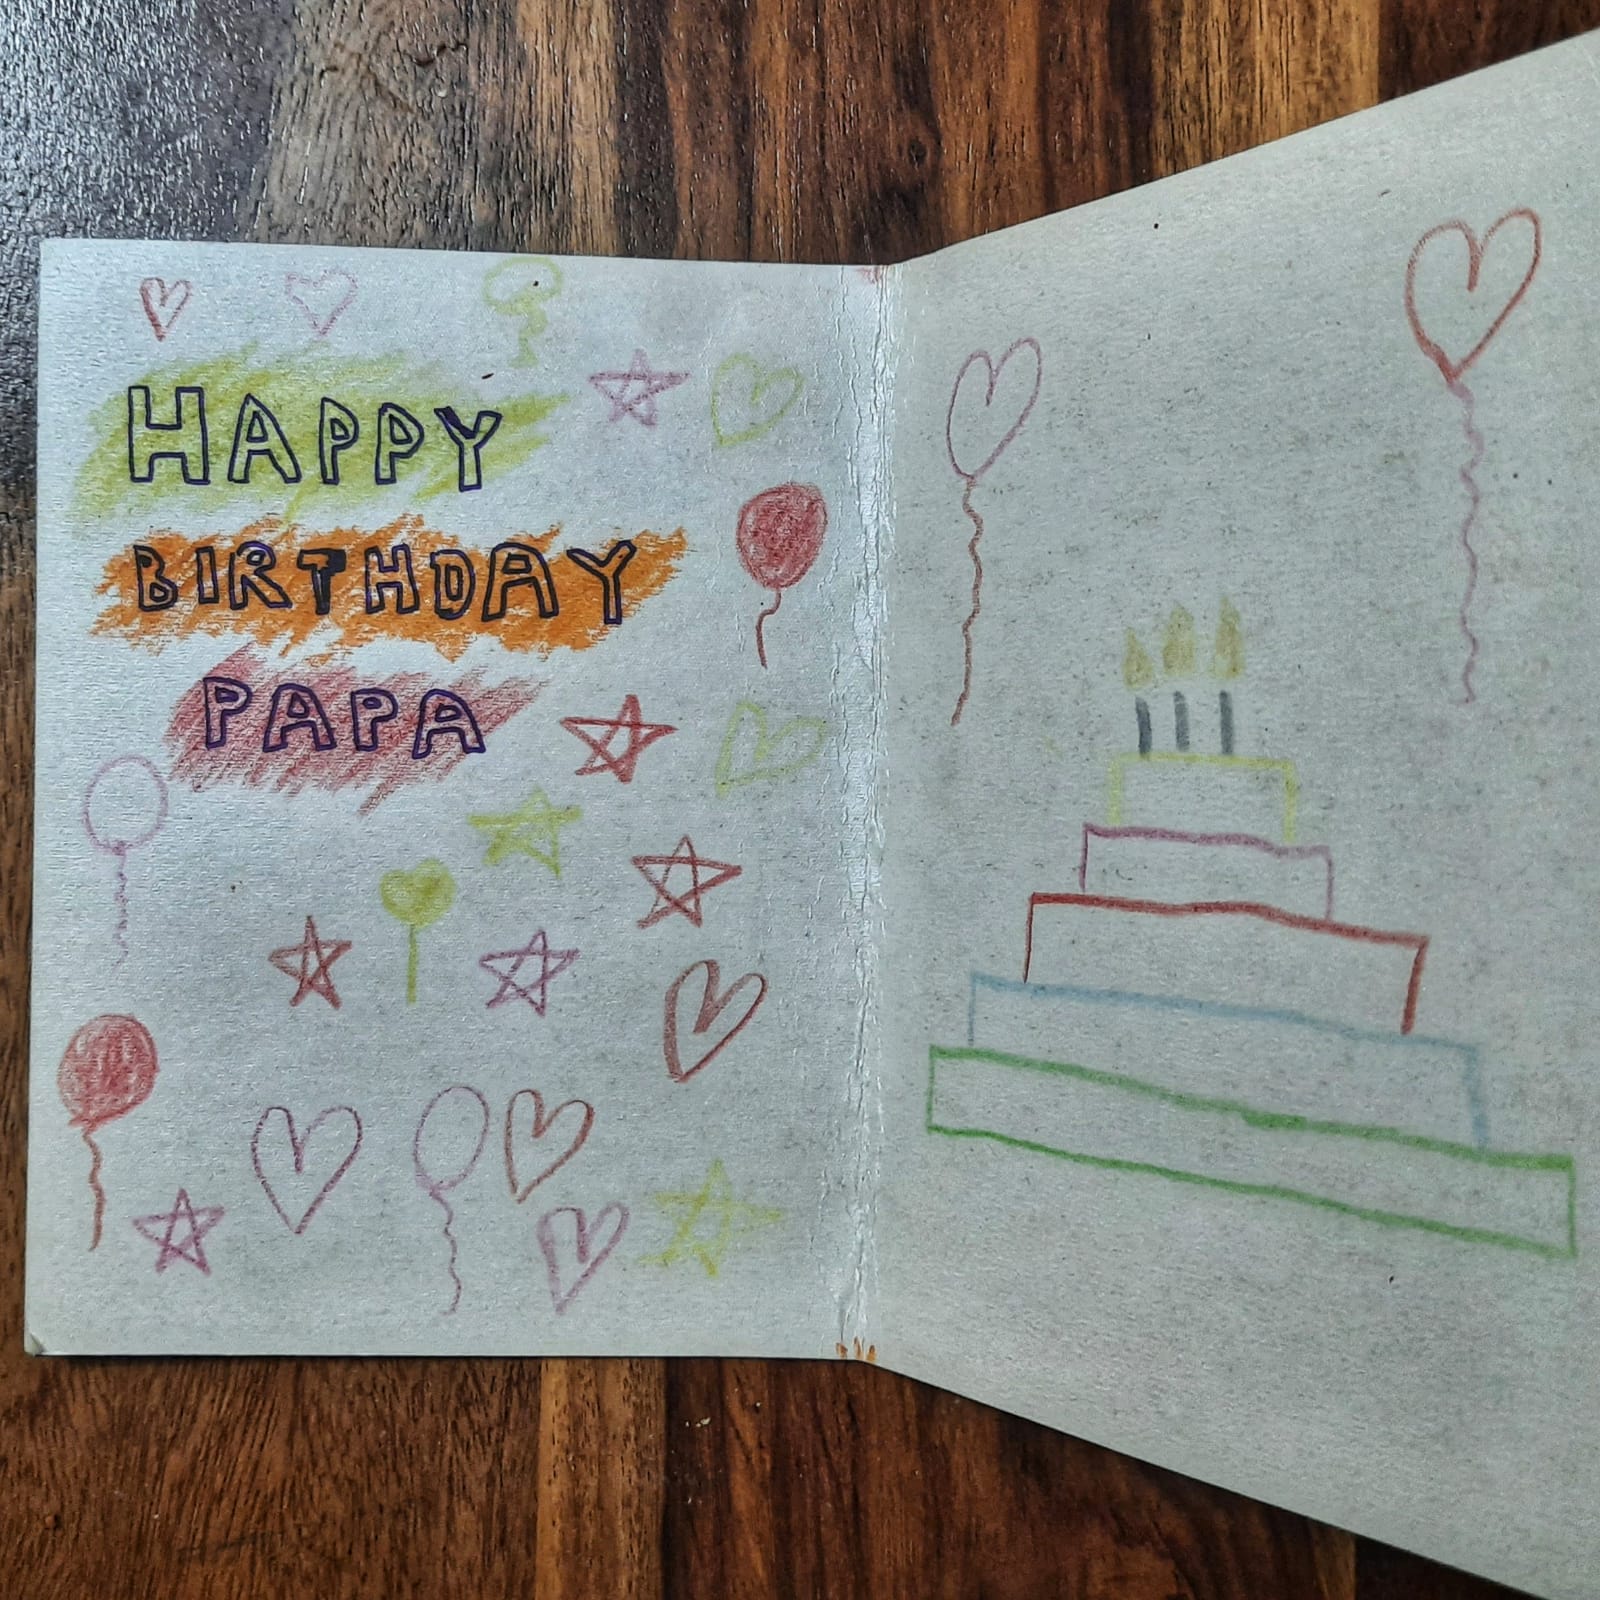 HAPPY
BIRTHDAY
PAPA